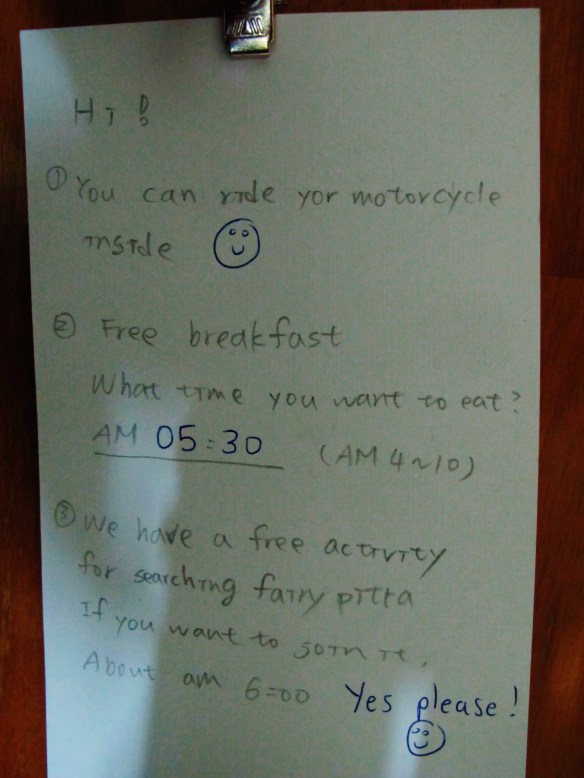 Hi!
① You can ride yor motorcycle
inside
② Free breakfast
What time you want to eat?
AM 05:30 (AM 4~10)
③ We have a free activity
for searching fairy pitta
If you want to join it,
About am 6:00 Yes please!